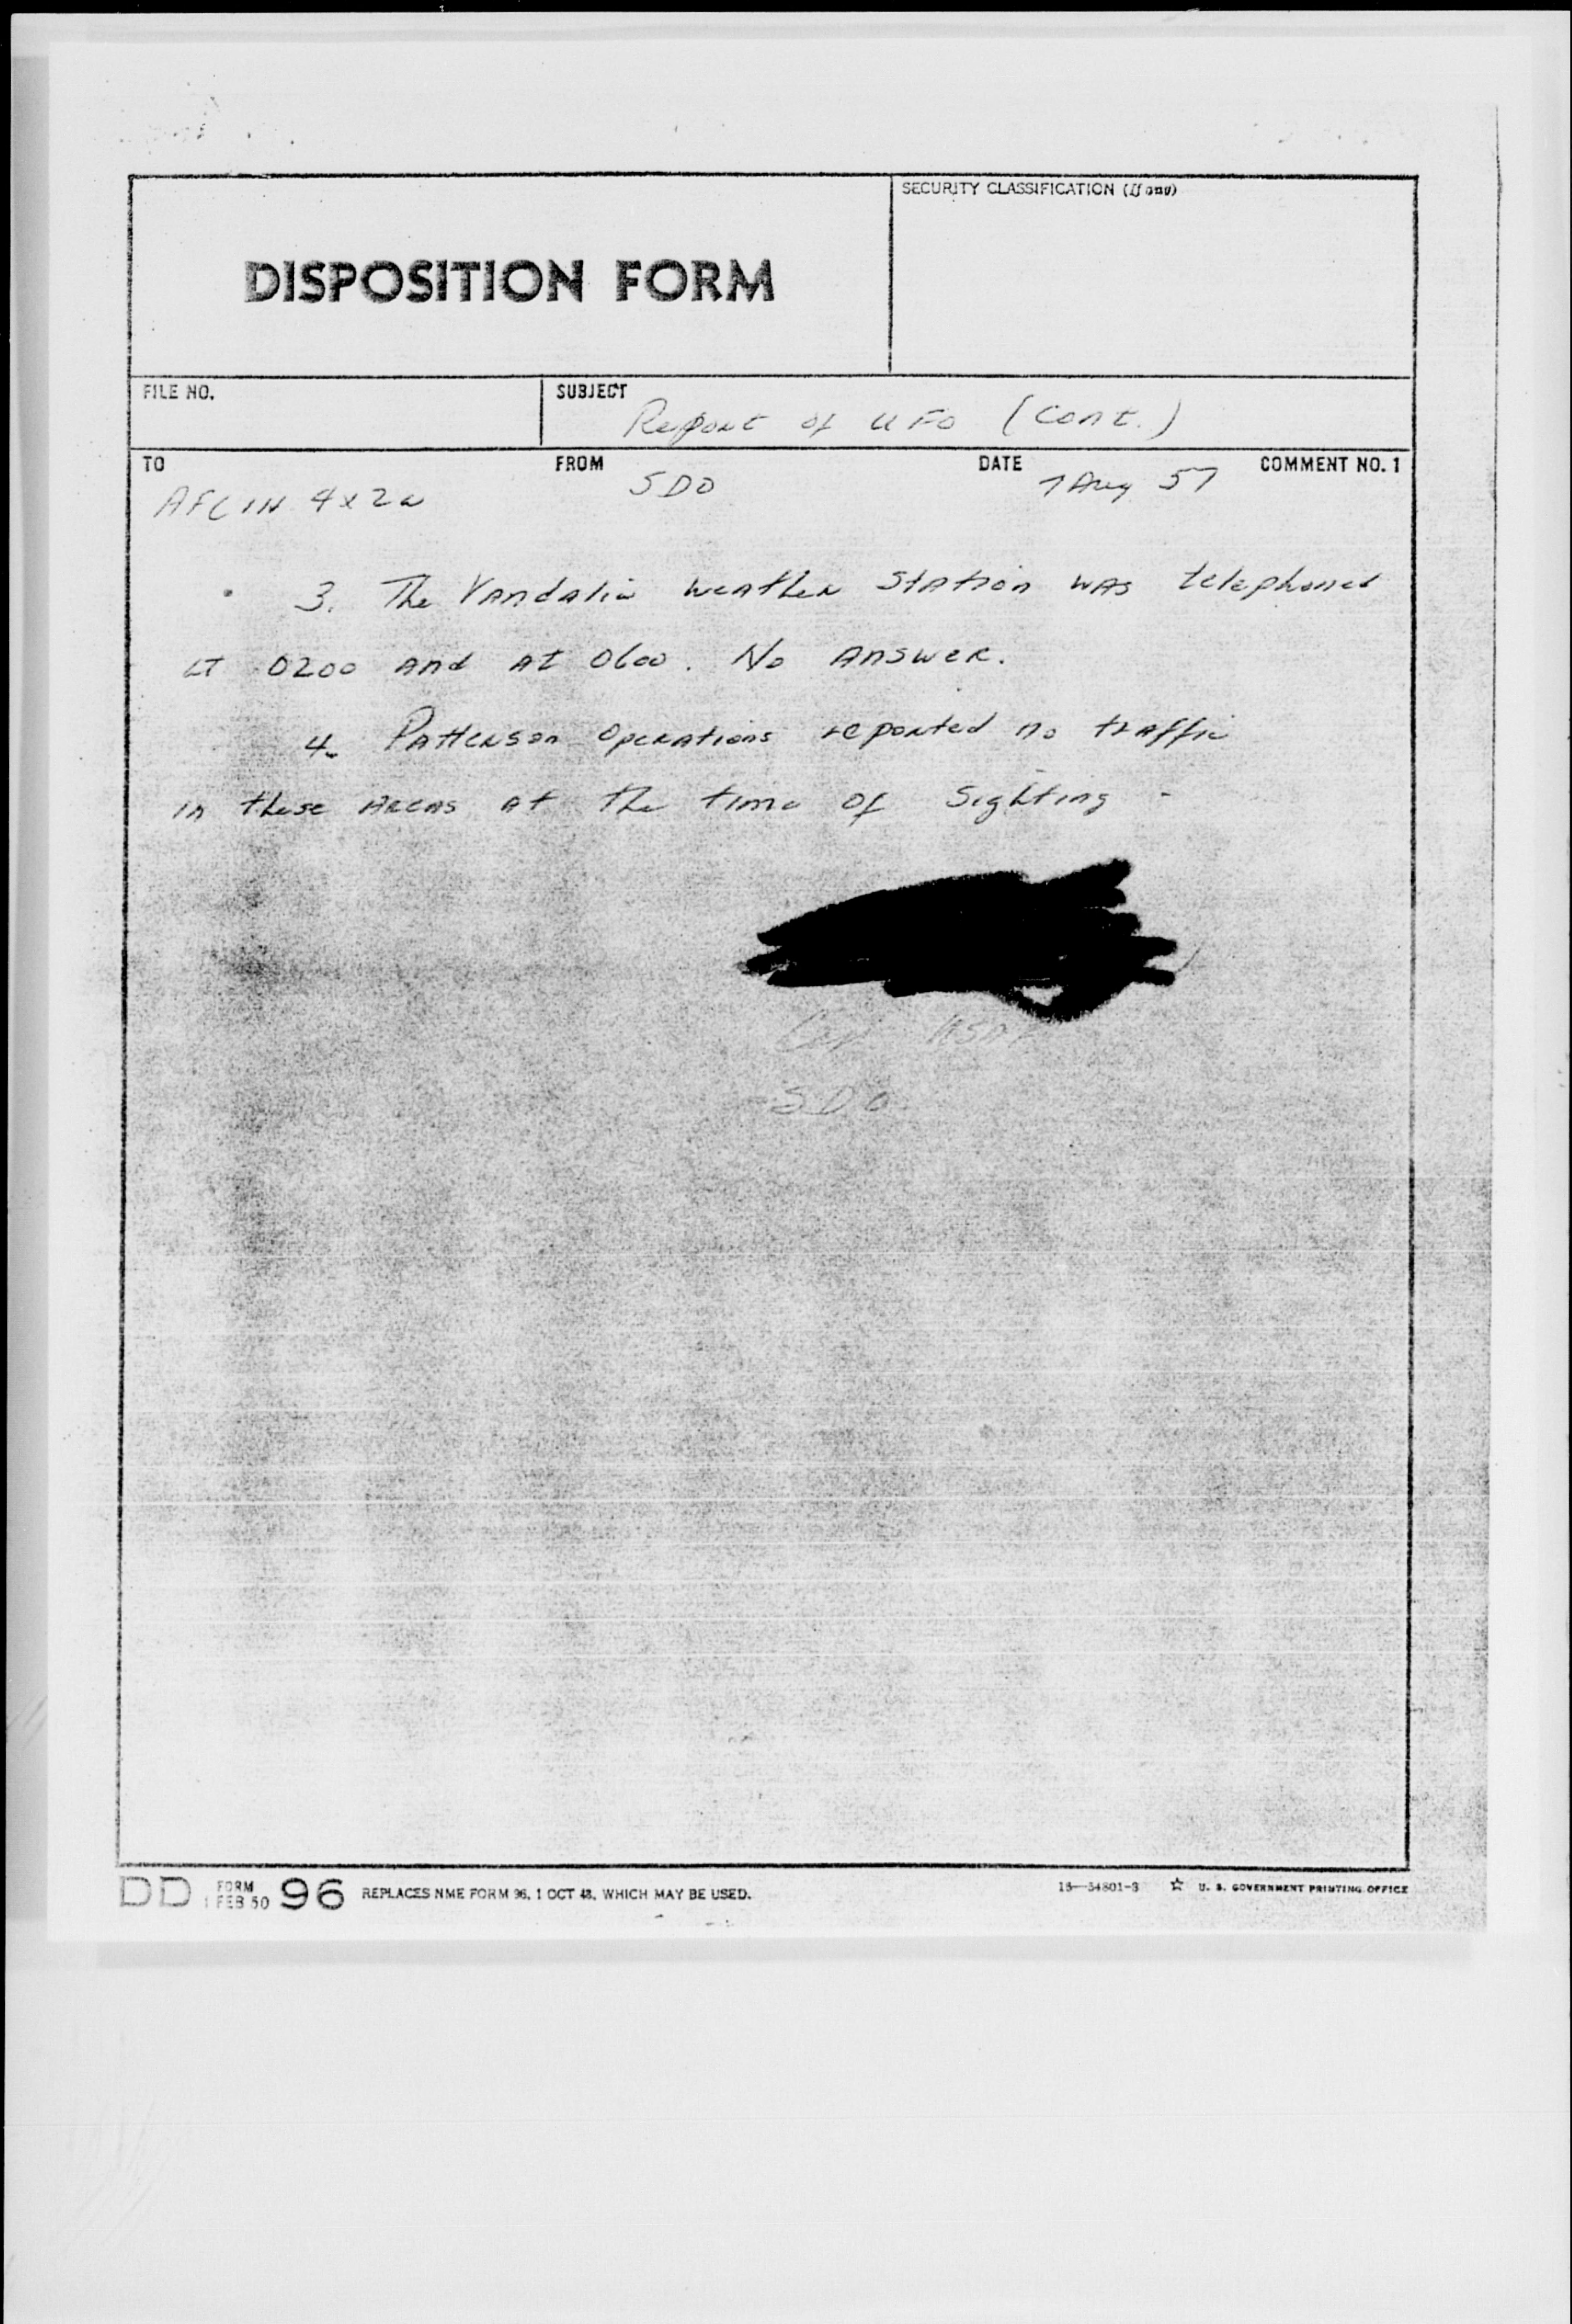 SECURITY CLASSIFICATION (If any)
DISPOSITION FORM
FILE NO.
SUBJECT
Report of UFO (Cont.)
TO
FROM
DATE
COMMENT NO. 1
AFCIN 4x2a
SDO
7 Aug 57
3. The Vandalia weather station was telephoned
at 0200 and at 0600. No answer.
4. Patterson Operations reported no traffic
in these areas at the time of sighting -
USAF
SDO
DD FORM 1 FEB 50 96 REPLACES NME FORM 96, 1 OCT 48, WHICH MAY BE USED.
16—54801-3 ☆ U. S. GOVERNMENT PRINTING OFFICE